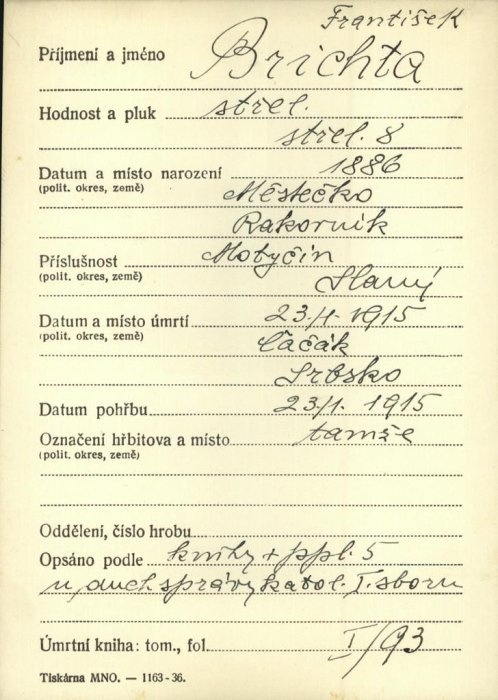 František
Příjmení a jméno Brichta
Hodnost a pluk střel.
střel. 8
Datum a místo narození 1886
(polit. okres, země) Městečko
Rakovník
Příslušnost Motyčín
(polit. okres, země) Slaný
Datum a místo úmrtí 23./1. 1915
(polit. okres, země) Čačák
Srbsko
Datum pohřbu 23/1. 1915
Označení hřbitova a místo tamže
(polit. okres, země)
Oddělení, číslo hrobu
Opsáno podle knihy + ppl. 5
u duch správy katol. I. sboru
Úmrtní kniha: tom., fol. I/93
Tiskárna MNO. — 1163-36.